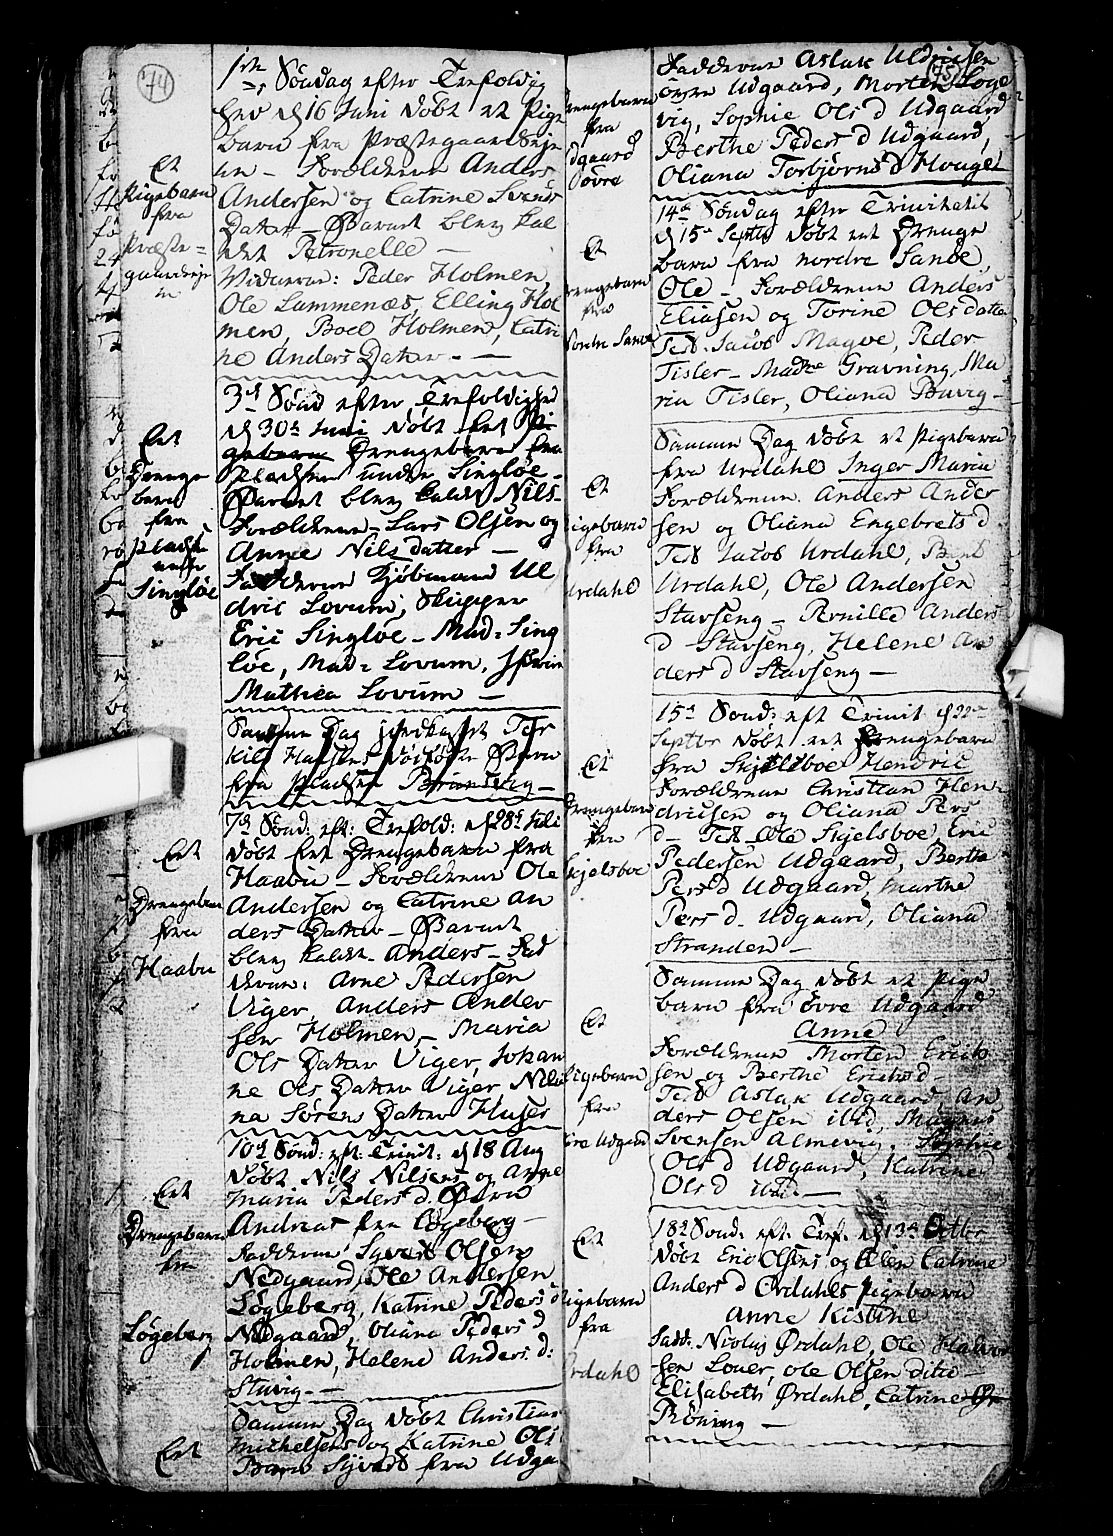 74
1ste Søndag efter Trefoldig
hed d 16 Juni døbt et Pige
barn fra Præstegaardseje
n - Forældrene Anders
Andersen og Catrine Svends
Datter - Barnet blev kal
det Petronelle -
Vidderne: Peder Holmen,
Ole Lammenæs, Elling Hol
men, Boel Holmen, Catri
ne Anders Datter -
Et
Pigebarn
fra
Præste-
gaardseje
n
3d Sønd efter Trefoldighed
d 30te Juni døbt Eet Pi
gebarn Drengebarn fra
Pladsen under Singløe -
Barnet blev kaldt Nils -
Forældrene - Lars Olsen og
Anne Nilsdatter -
Fadderne Kjøbmand Ul
dric Lovum, Skipper
Eric Singløe - Mad: Sing
løe, Mad: Lovum, Jfr
Mathea Lovum -
Eet
Drenge
barn
fra
Pladsen
under
Singløe
Samme Dag jordkastet Ter
kild Hansens dødfødte Barn
fra Pladsen Brunsvig -
7d Sønd: eft: Trefold: d 28de Juli
døbt Eet Drengebarn fra
Haabu - Forældrene Ole
Andersen og Catrine An
ders Datter - Barnet
blev kaldt - Anders - Fad
derne: Arne Pedersen
Viger, Anders Ander
sen Holmen - Maria
Ols Datter Viger, Johan
ne Ols Datter Viger
na Sørens Datter Huser
Eet
Drengebarn
fra
Haabu
10d Sønd: eft: Trinit: d 18 Aug
døbt Nils Nilsens og Anne
Maria Peders d. Barn
Andreas fra Løgeberg -
Fadderne Syvert Olsen
Nedgaard, Ole Andersen
Løgeberg, Katrine Peders d
Nedgaard, Oliana Peders d
Holmen, Helene Anders d:
Stuvig -
Eet
Drengebarn
fra
Løgeberg
Samme Dag døbt Christian
Michelsens og Katrine Ols
Barn Syvert fra Udga
Eet
75
Fadderne Aslak Uldricsen
övre Udgaard, Morten Løge
vig, Sophie Ols d Udgaard
Berthe Peders d Udgaard,
Oliana Torbjørns d Houget
Drengebarn
fra
dgaard
övre
14de Søndag efter Trinitatis
d 15de Septbr døbt eet Drenge
barn fra nordre Sandøe
Ole - Forældrene Anders
Eliasen og Torine Ols datte
Test. Jacob Magøe, Peder
Tisler - Madke Gravning, Ma
ria Tisler, Oliana Buvig -
Et
rengebarn
fra
Nordre Sandø
Samme Dag døbt et Pigebarn
fra Urdahl Inger Maria
Forældrene. Anders Ander
sen og Oliana Engebrets d
Test Jacob Urdahl, Berte
Urdahl, Ole Andersen
Stavseng - Pernille Anders
d - Stavseng, Helene An
ders d Stavseng -
Et
igebarn
fra
Urdahl
15de Sønd: eft Trinit d 22de
Septbr døbt eet Drengebarn
fra Skjelsboe Hendric
Forældrene Christian Hen
dricsen og Oliana Pers
d - Test Ole Skjelsboe, Eric
Pedersen Udgaard, Berthe
Pers d Udgaard, Marthe
Pers d - Udgaard, Oliana
Stranden -
Et
Drengebarn
fra
Skjelsboe
Samme Dag døbt et Pige
barn fra övre Udgaard
Anne
Forældrene Morten Erik
sen og Berthe Eriks d -
Test Aslak Udgaard, An
ders Olsen ibid, Magnus
Svensen Almevig, Sophie
Ols d Udgaard, Katrine
Ols d ibid -
Et
Pigebarn
fra
övre Udgaard
18de Sønd: eft. Tref. d 13de Octbr
døbt Eric Olsens og Ellen Catrine
Anders d Ørdahls Pigebarn
Anne Kistine
Fadd. Nicolay Ørdahl, Ole Halvor
sen Louer, Ole Olsen ditto -
Elisabeth Ørdahl, Catrine
Röning -
Et
Pigebarn
fra
Ørdahl